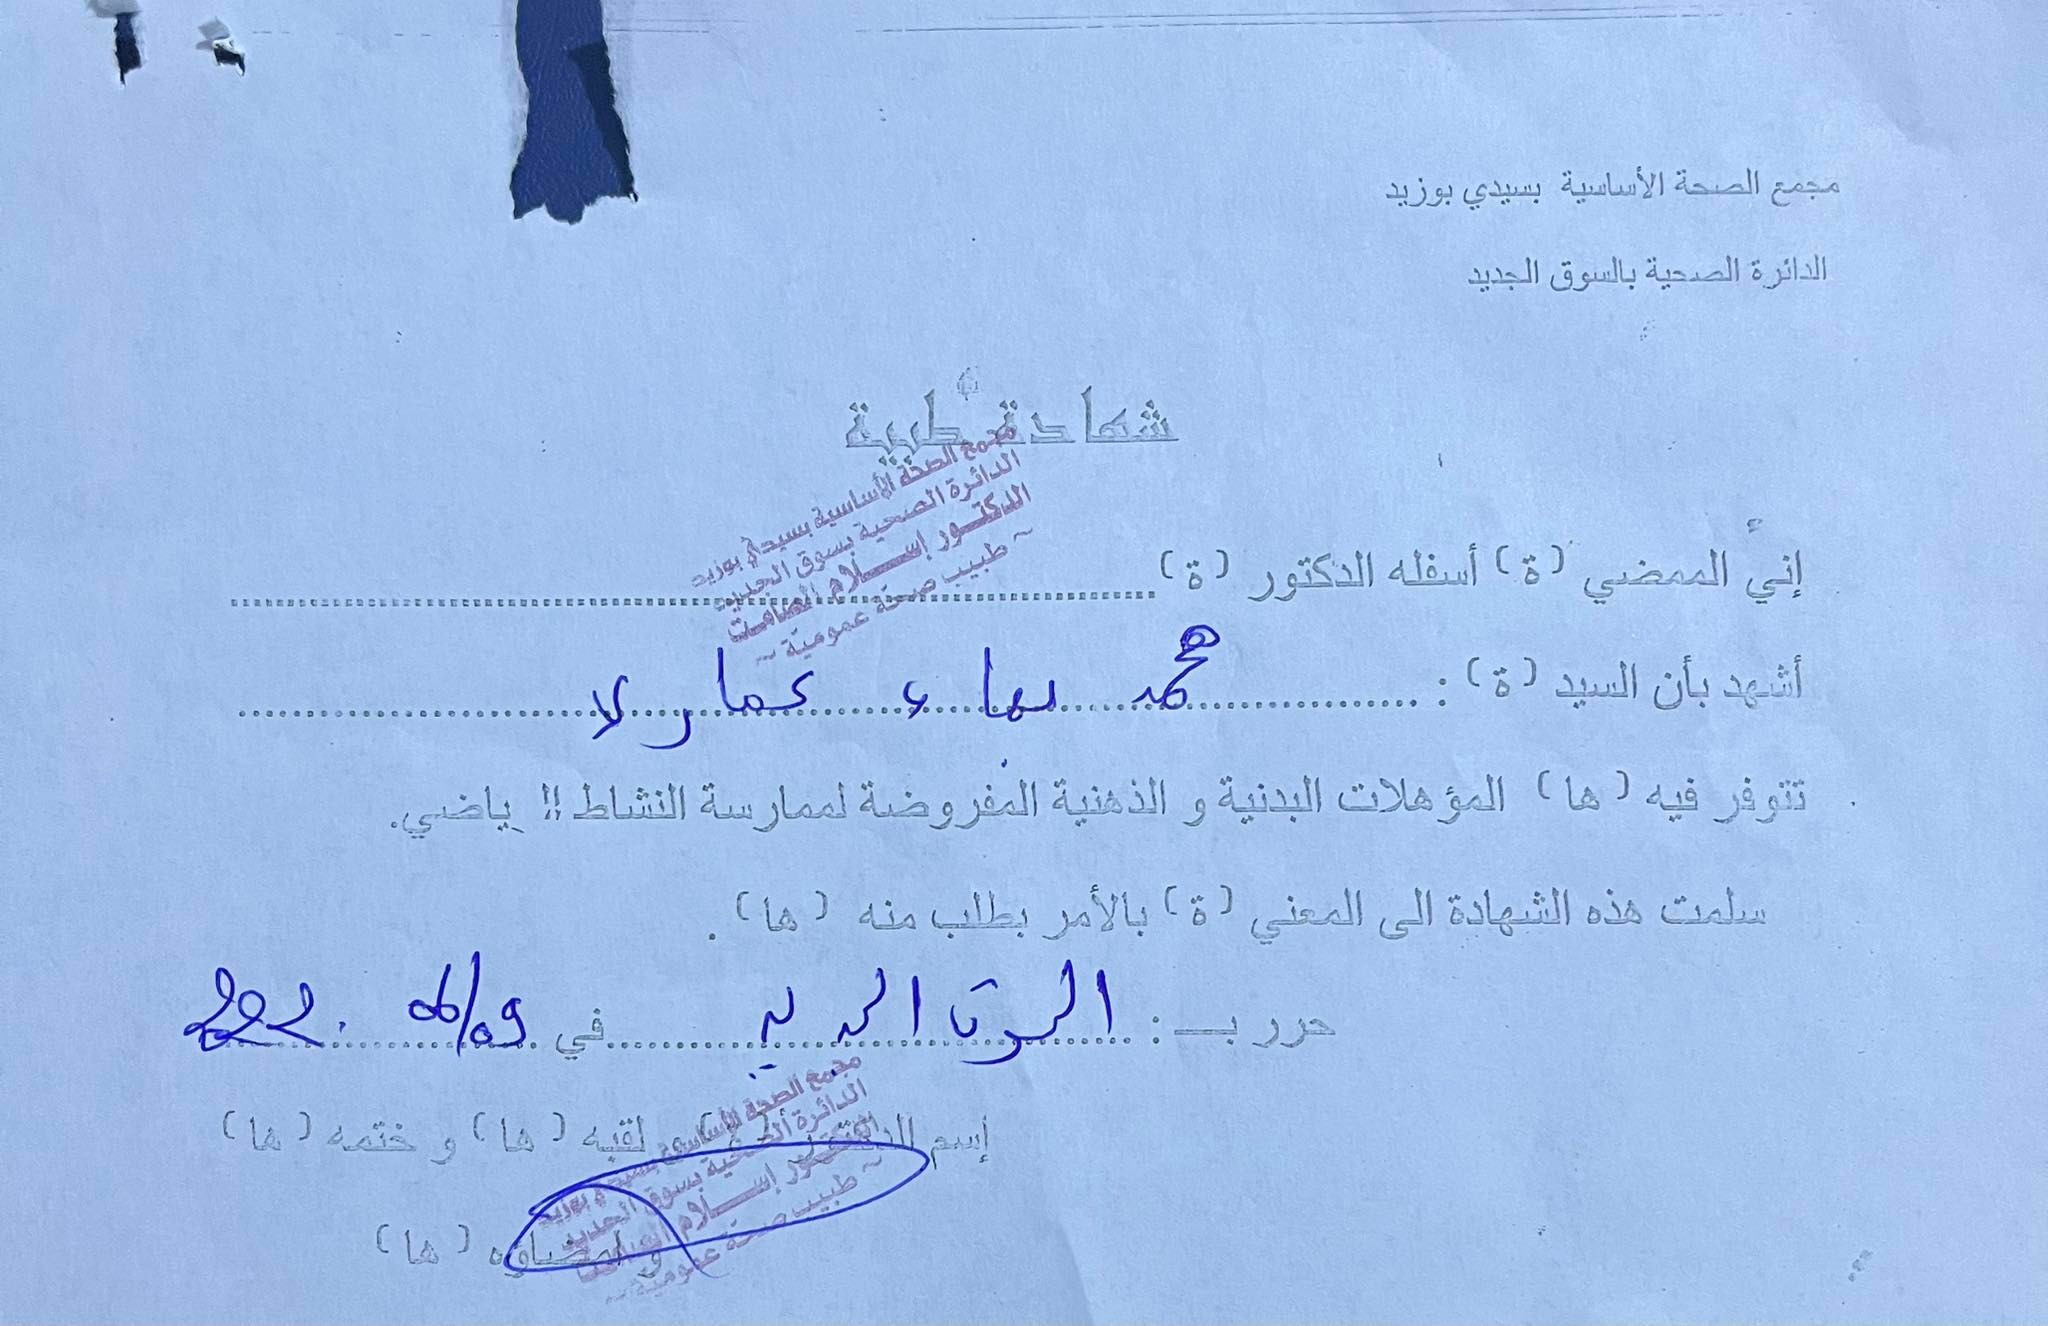 مجمع الصحة الأساسية بسيدي بوزيد
الدائرة الصحية بالسوق الجديد
شهادة طبية
مجمع الصحة الأساسية بسيدي بوزيد
الدائرة الصحية بسوق الجديد
الدكتور إسلام
~ طبيب صحة عمومية ~
إنيّ الممضي (ة) أسفله الدكتور (ة)
أشهد بأن السيد (ة) : محمد بهاء عمار
تتوفر فيه (ها) المؤهلات البدنية و الذهنية المفروضة لممارسة النشاط الرياضي.
سلمت هذه الشهادة الى المعني (ة) بالأمر بطلب منه (ها) .
حرر بـ : السوق الجديد في 06/09
إسم الدكتور (ة) و لقبه (ها) و ختمه (ها)
و إمضاؤه (ها)
مجمع الصحة الأساسية بسيدي بوزيد
الدائرة الصحية بسوق الجديد
الدكتور إسلام
~ طبيب صحة عمومية ~